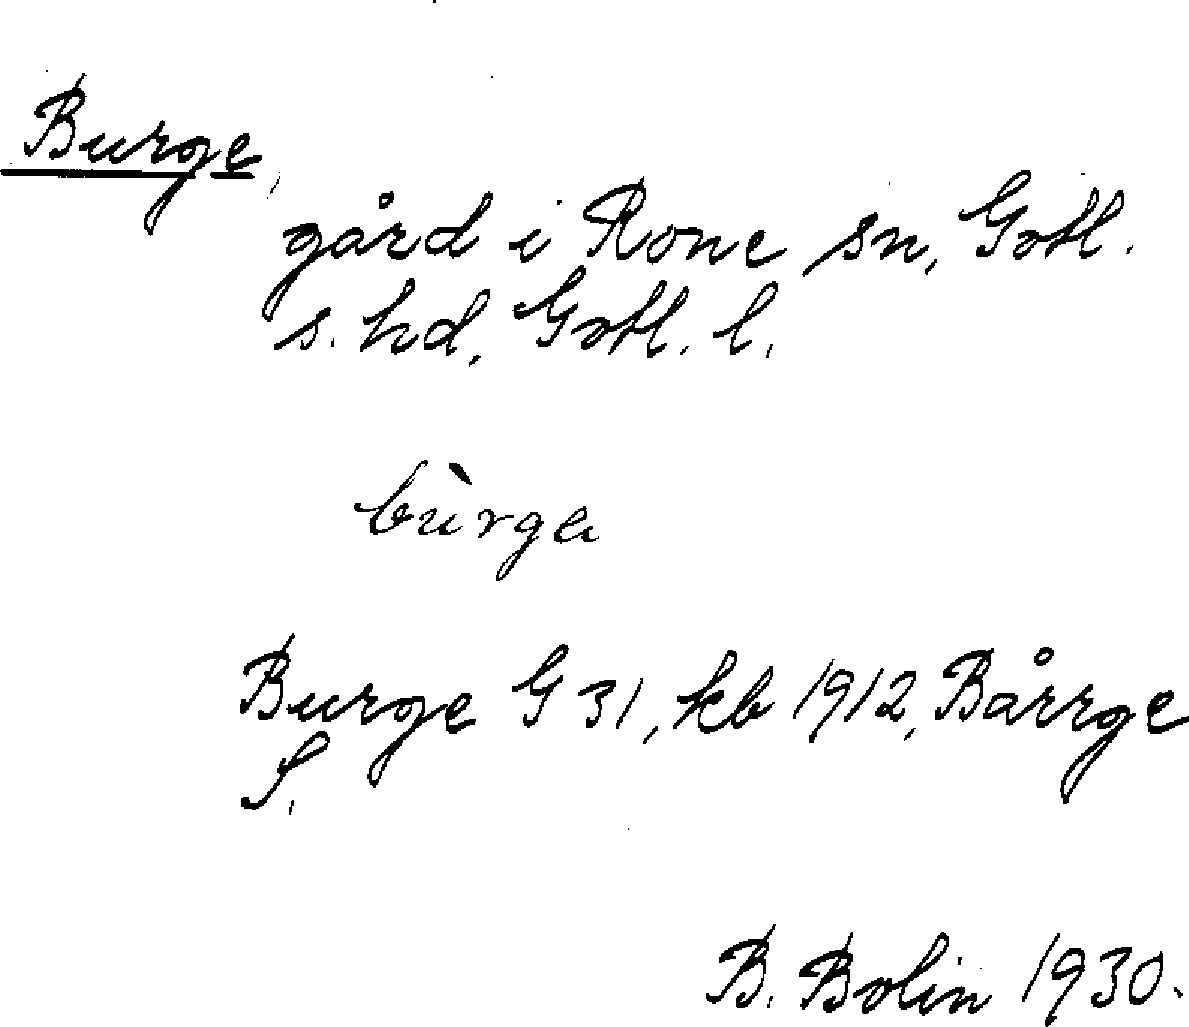 Burge,
gård i Rone sn, Gotl.
s. hd, Gotl. l.
bùrga
Burge G 31, kb 1912, Bårrge
S.
B. Bolin 1930.